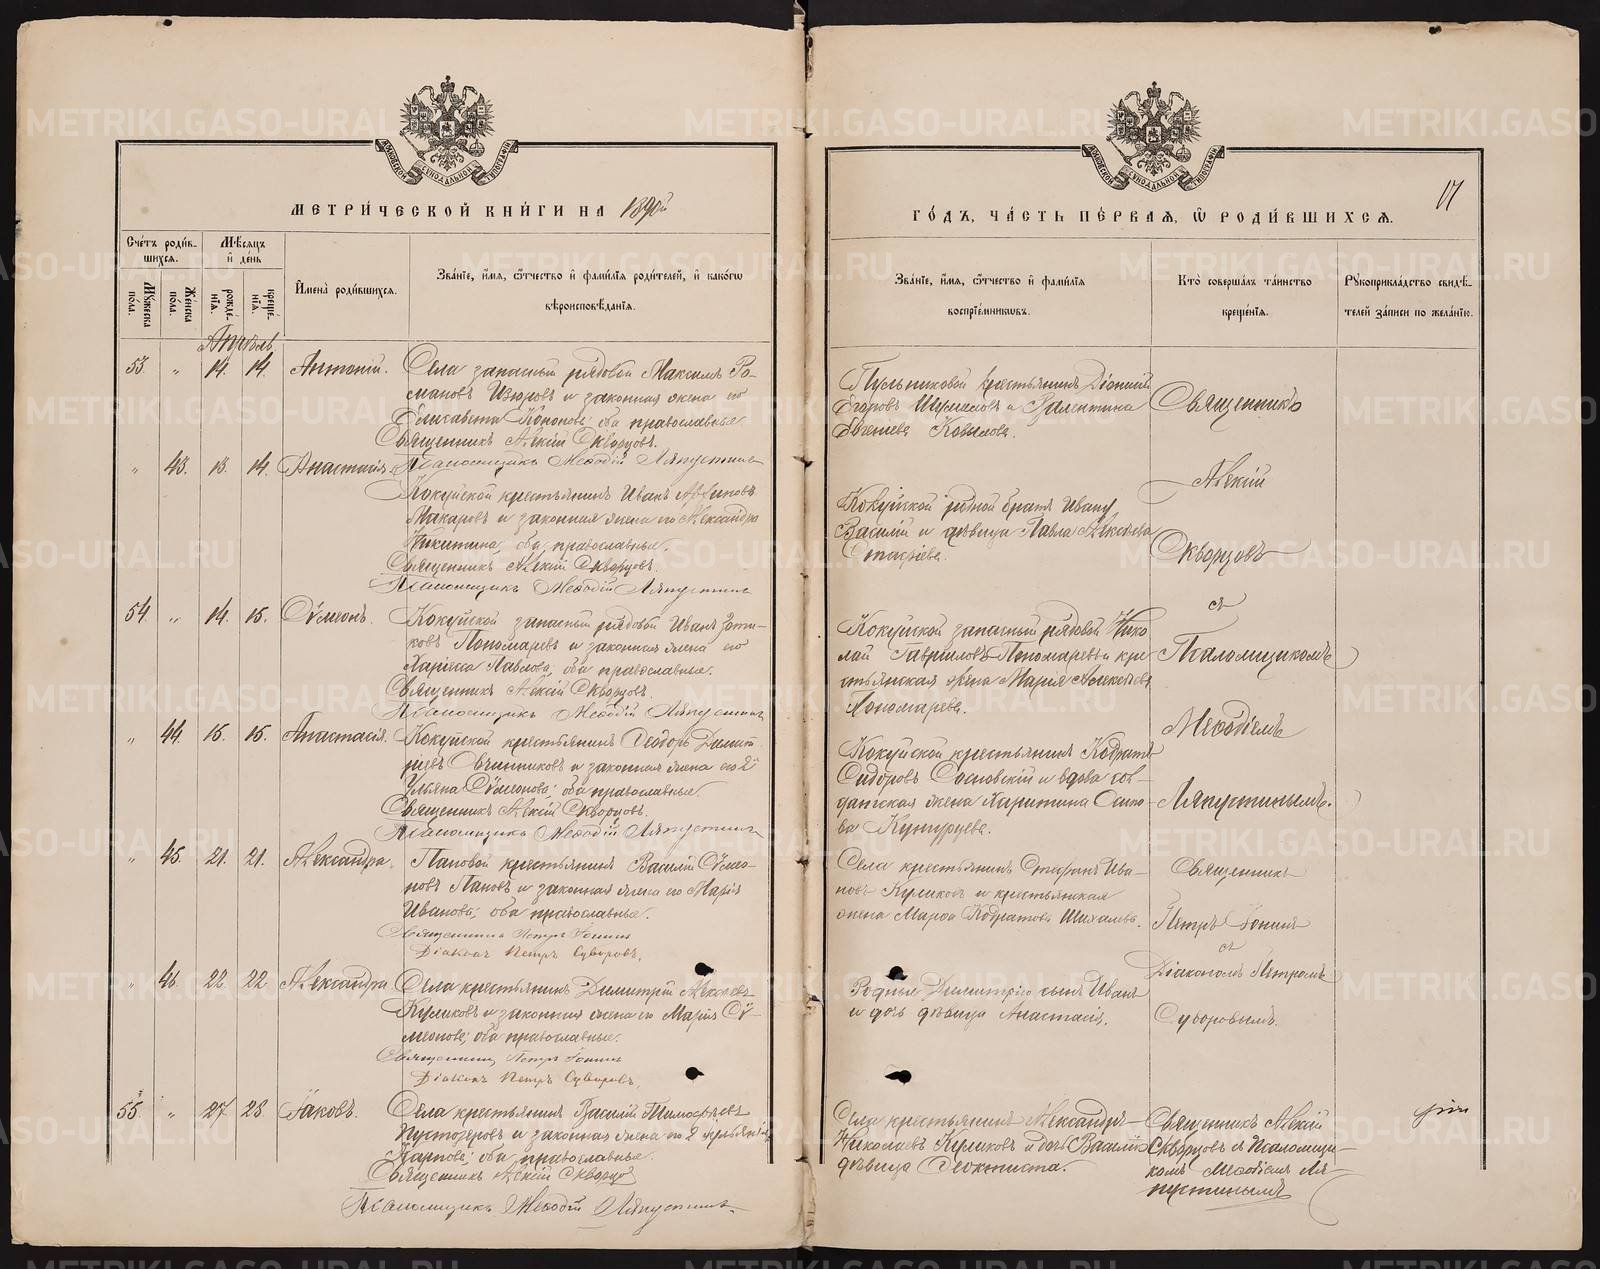 МЕТРИЧЕСКОЙ КНИГИ НА 1890й
Счетъ родив-
шихся.
Мѣсяцъ
и день
Мужеска пола.
Женска пола.
рожде-
нія.
креще-
нія.
Имена родившихся.
Званіе, имя, отчество и фамилія родителей, и какого
вѣроисповѣданія.
Апрѣль
53. " 14. 14. Антоній. Села запасный рядовой Максимъ Ро-
мановъ и законная жена его
Елисавета Кононова; оба православные
Священникъ Алексій Скворцовъ.
" 43. 13. 14. Анастасія. Псаломщикъ Меѳодій Ляпустинъ
Кокуйской крестьянинъ Иванъ
Макаровъ и законная жена его Александра
Никитина; оба православные.
Священникъ Алексій Скворцовъ.
Псаломщикъ Меѳодій Ляпустинъ
54. " 14. 15. Сѵмеонъ. Кокуйской запасный рядовой Иванъ Зоти-
ковъ Пономаревъ и законная жена его
Павлова; оба православные.
Священникъ Алексій Скворцовъ.
Псаломщикъ Меѳодій Ляпустинъ
" 44. 15. 15. Анастасія. Кокуйской крестьянинъ Ѳеодоръ Димит-
ріевъ Овчинниковъ и законная жена его 2й
Ульяна Сѵмеонова; оба православные.
Священникъ Алексій Скворцовъ.
Псаломщикъ Меѳодій Ляпустинъ
" 45. 21. 21. Александра. Пановой крестьянинъ Василій Сѵмео-
новъ Пановъ и законная жена его Марія
Иванова; оба православные.
Священникъ Петръ Іонинъ
Діаконъ Петръ Суворовъ.
" 46. 22. 22. Александра. Села крестьянинъ Димитрій Алексѣевъ
Куликовъ и законная жена его Марія Сѵ-
меонова; оба православные.
Священникъ Петръ Іонинъ
Діаконъ Петръ Суворовъ.
55. " 27. 28. Іаковъ. Села крестьянинъ Василій Тимоѳеевъ
Пустозеровъ и законная жена его 2
Карпова; оба православные.
Священникъ Алексій Скворцовъ
Псаломщикъ Меѳодій Ляпустинъ
ГОДЪ, ЧАСТЬ ПЕРВАЯ, Ѡ РОДИВШИХСЯ.
17
Званіе, имя, отчество и фамилія
воспріемниковъ.
Кто совершалъ таинство
крещенія.
Рукоприкладство свидѣ-
телей записи по желанію.
крестьянинъ Діонисій
Егоровъ и Валентина
Евгеніева Ковылова.
Кокуйской родной братъ Ивану
Василій и дѣвица Павла Алексѣева
Кокуйской запасный рядовой Нико-
лай Гавриловъ Пономаревъ и кре-
стьянская жена Марія Алексѣева
Пономарева.
Кокуйской крестьянинъ Кодратъ
Сидоровъ Сосновскій и вдова сол-
датская жена Харитина Осипо-
ва
Села крестьянинъ Стефанъ Ива-
новъ Куликовъ и крестьянская
жена Марѳа Кодратова Шихалева.
Родные Димитрію сынъ Иванъ
и дочь дѣвица Анастасія.
Села крестьянинъ Александръ
Николаевъ Куликовъ и дочь Василія
дѣвица Ѳеоктиста.
Священникъ
Алексій
Скворцовъ
съ
Псаломщикомъ
Меѳодіемъ
Ляпустинымъ.
Священникъ
Петръ Іонинъ
съ
Діакономъ Петромъ
Суворовымъ.
Священникъ Алексій
Скворцовъ съ Псаломщи-
комъ Меѳодіемъ Ля-
пустинымъ
METRIKI.GASO-URAL.RU